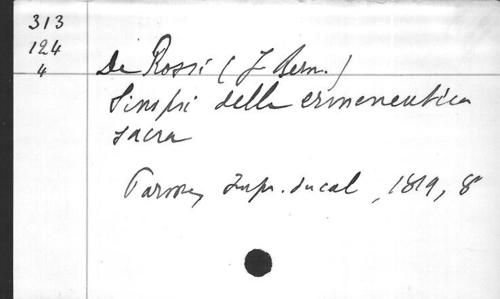 313
124
4
De Rossi (J Bern.)
Sinopsi della ermeneutica
sacra
Parme, Impr. ducal, 1819, 8°